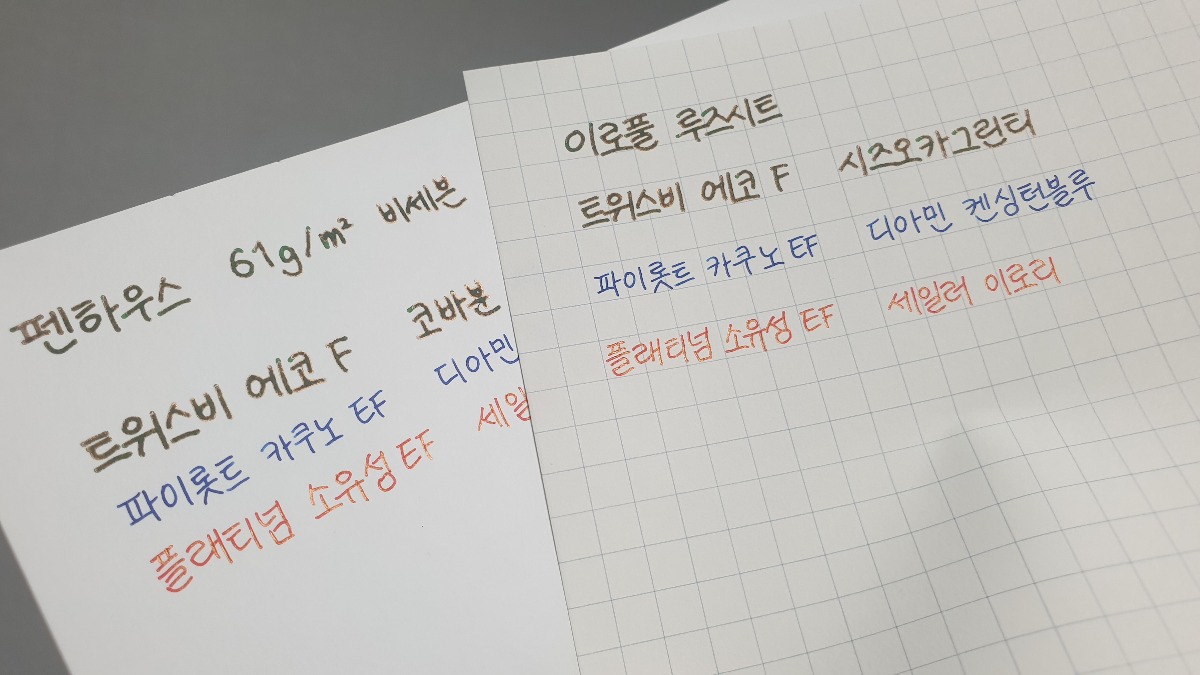 펜하우스 61g/m² 비세븐
트위스비 에코 F 코바분
파이롯트 카쿠노 EF 디아민
플래티넘 소유성 EF 세일
이로풀 루즈시트
트위스비 에코 F 시즈오카그린티
파이롯트 카쿠노 EF 디아민 켄싱턴블루
플래티넘 소유성 EF 세일러 이로리